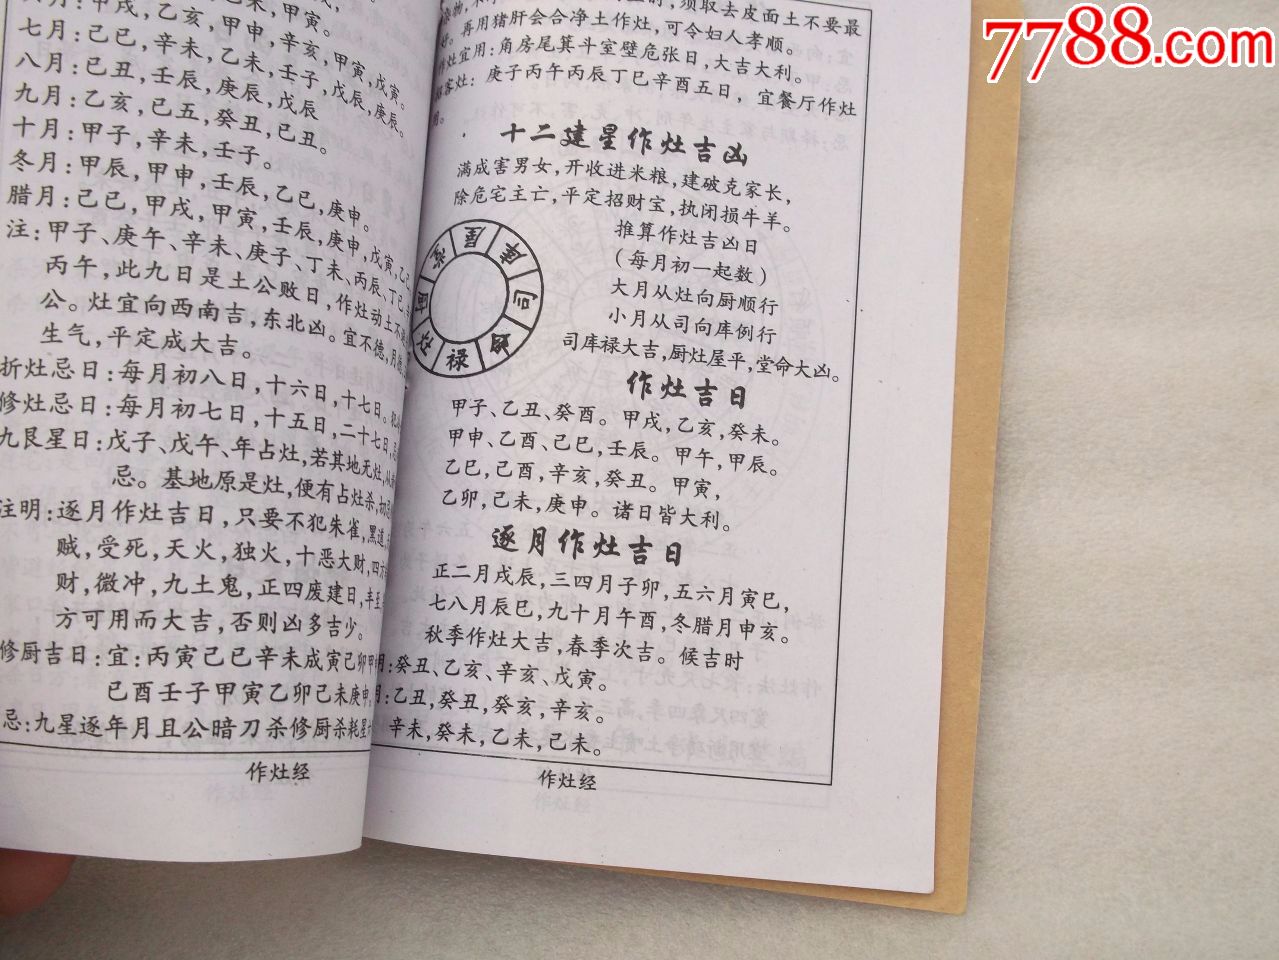 7788.com
甲戌,乙亥,甲申,辛亥,甲寅,戊寅。
七月:己巳,辛未,乙未,壬子,戊辰,庚辰。
八月:己丑,壬辰,庚辰,戊辰
九月:乙亥,己五,癸丑,己丑。
十月:甲子,辛未,壬子。
冬月:甲辰,甲申,壬辰,乙巳,庚申。
腊月:己巳,甲戌,甲寅,壬辰,庚申,戊寅,乙
注:甲子、庚午、辛未、庚子、丁未、丙辰、丁巳、
丙午,此九日是土公败日,作灶动土不
公。灶宜向西南吉,东北凶。宜不德,月
生气,平定成大吉。
折灶忌日:每月初八日,十六日,十七日。
修灶忌日:每月初七日,十五日,二十七日,
九艮星日:戊子、戊午、年占灶,若其地无灶,
忌。基地原是灶,便有占灶杀,
注明:逐月作灶吉日,只要不犯朱雀,黑道,
贼,受死,天火,独火,十恶大财,四
财,微冲,九土鬼,正四废建日,
方可用而大吉,否则凶多吉少。
修厨吉日:宜:丙寅己巳辛未成寅己卯甲
己酉壬子甲寅乙卯己未庚申
忌:九星逐年月且公暗刀杀修厨杀耗星
作灶经
须取去皮面土不要最
好。再用猪肝会合净土作灶,可令妇人孝顺。
作灶宜用:角房尾箕斗室壁危张日,大吉大利。
客灶:庚子丙午丙辰丁巳辛酉五日,宜餐厅作灶
用。
十二建星作灶吉凶
满成害男女,开收进米粮,建破克家长,
除危宅主亡,平定招财宝,执闭损牛羊。
推算作灶吉凶日
(每月初一起数)
大月从灶向厨顺行
小月从司向库例行
司库禄大吉,厨灶屋平,堂命大凶。
堂
屋
库
司
禄
作灶吉日
甲子、乙丑、癸酉。甲戌,乙亥,癸未。
甲申、乙酉、己巳,壬辰。甲午,甲辰。
乙巳,己酉,辛亥,癸丑。甲寅,
乙卯,己未,庚申。诸日皆大利。
逐月作灶吉日
正二月戌辰,三四月子卯,五六月寅巳,
七八月辰巳,九十月午酉,冬腊月申亥。
秋季作灶大吉,春季次吉。候吉时
月:癸丑、乙亥、辛亥、戊寅。
月:乙丑,癸丑,癸亥,辛亥。
辛未,癸未,乙未,己未。
作灶经